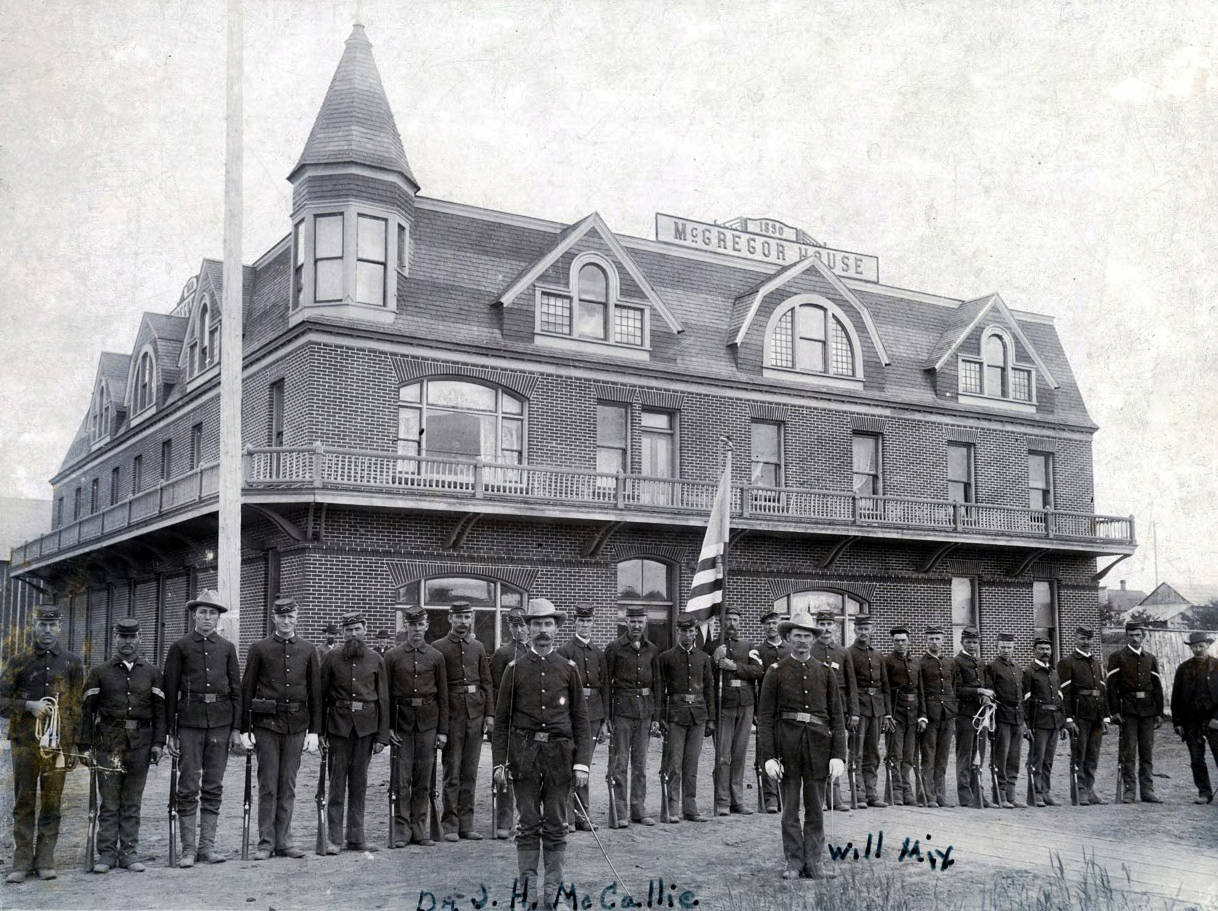 1890
McGREGOR HOUSE
Will Mix
Dr. J. H. McCallie